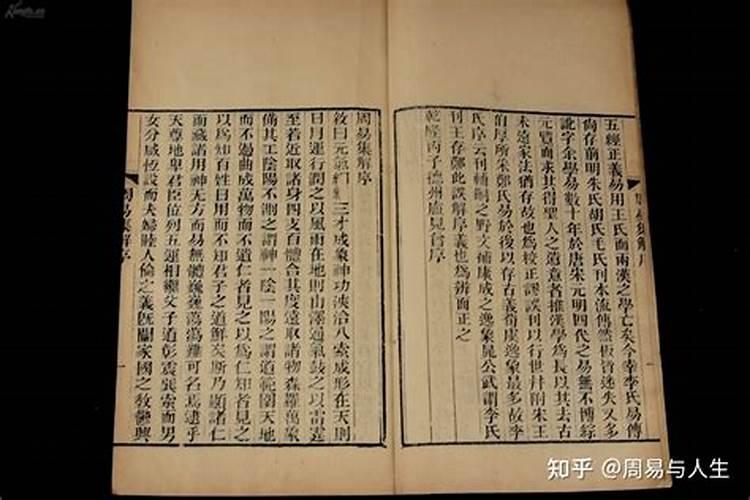 五經正義易用王氏而兩漢之學亡矣今幸李氏易傳
尚存前明朱氏胡氏毛氏刊本流傳然板皆迷失又多
訛字余學易數十年於唐宋元明四代之易無不博綜
元覽而求其得聖人之遺意者推漢學爲長以其去古
未遠家法猶存故也爲校正謬誤刊以行世并附朱王
伯厚所朱鄭氏易於後以存古義荀虞逸象最多故李
氏序云刊輔嗣之野文補康成之逸象晁公武謂李氏
刊王存鄭此誤解序義也爲辨而正之
乾隆丙子德州盧見曾序
周易集解序
周易集解序
敘曰元氣絪縕三才成象神功浹洽八索成形在天則
日月運行潤之以風雨在地則山澤通氣鼓之以雷霆
至若近取諸身四支百體合其度遠取諸物森羅萬象
備其工陰陽不測之謂神一陰一陽之謂道範圍天地
而不過曲成萬物而不遺仁者見之以爲仁知者見之
以爲知百姓日用而不知君子之道鮮矣斯乃顯諸仁
而藏諸用神无方而易無體巍巍蕩蕩難可名焉逮乎
天尊地卑君臣位列五運相繼父子道彰震巽索而男
女分咸恆設而夫婦睦人倫之義旣闡家國之教鬱興
周易集解序
知乎 @周易与人生